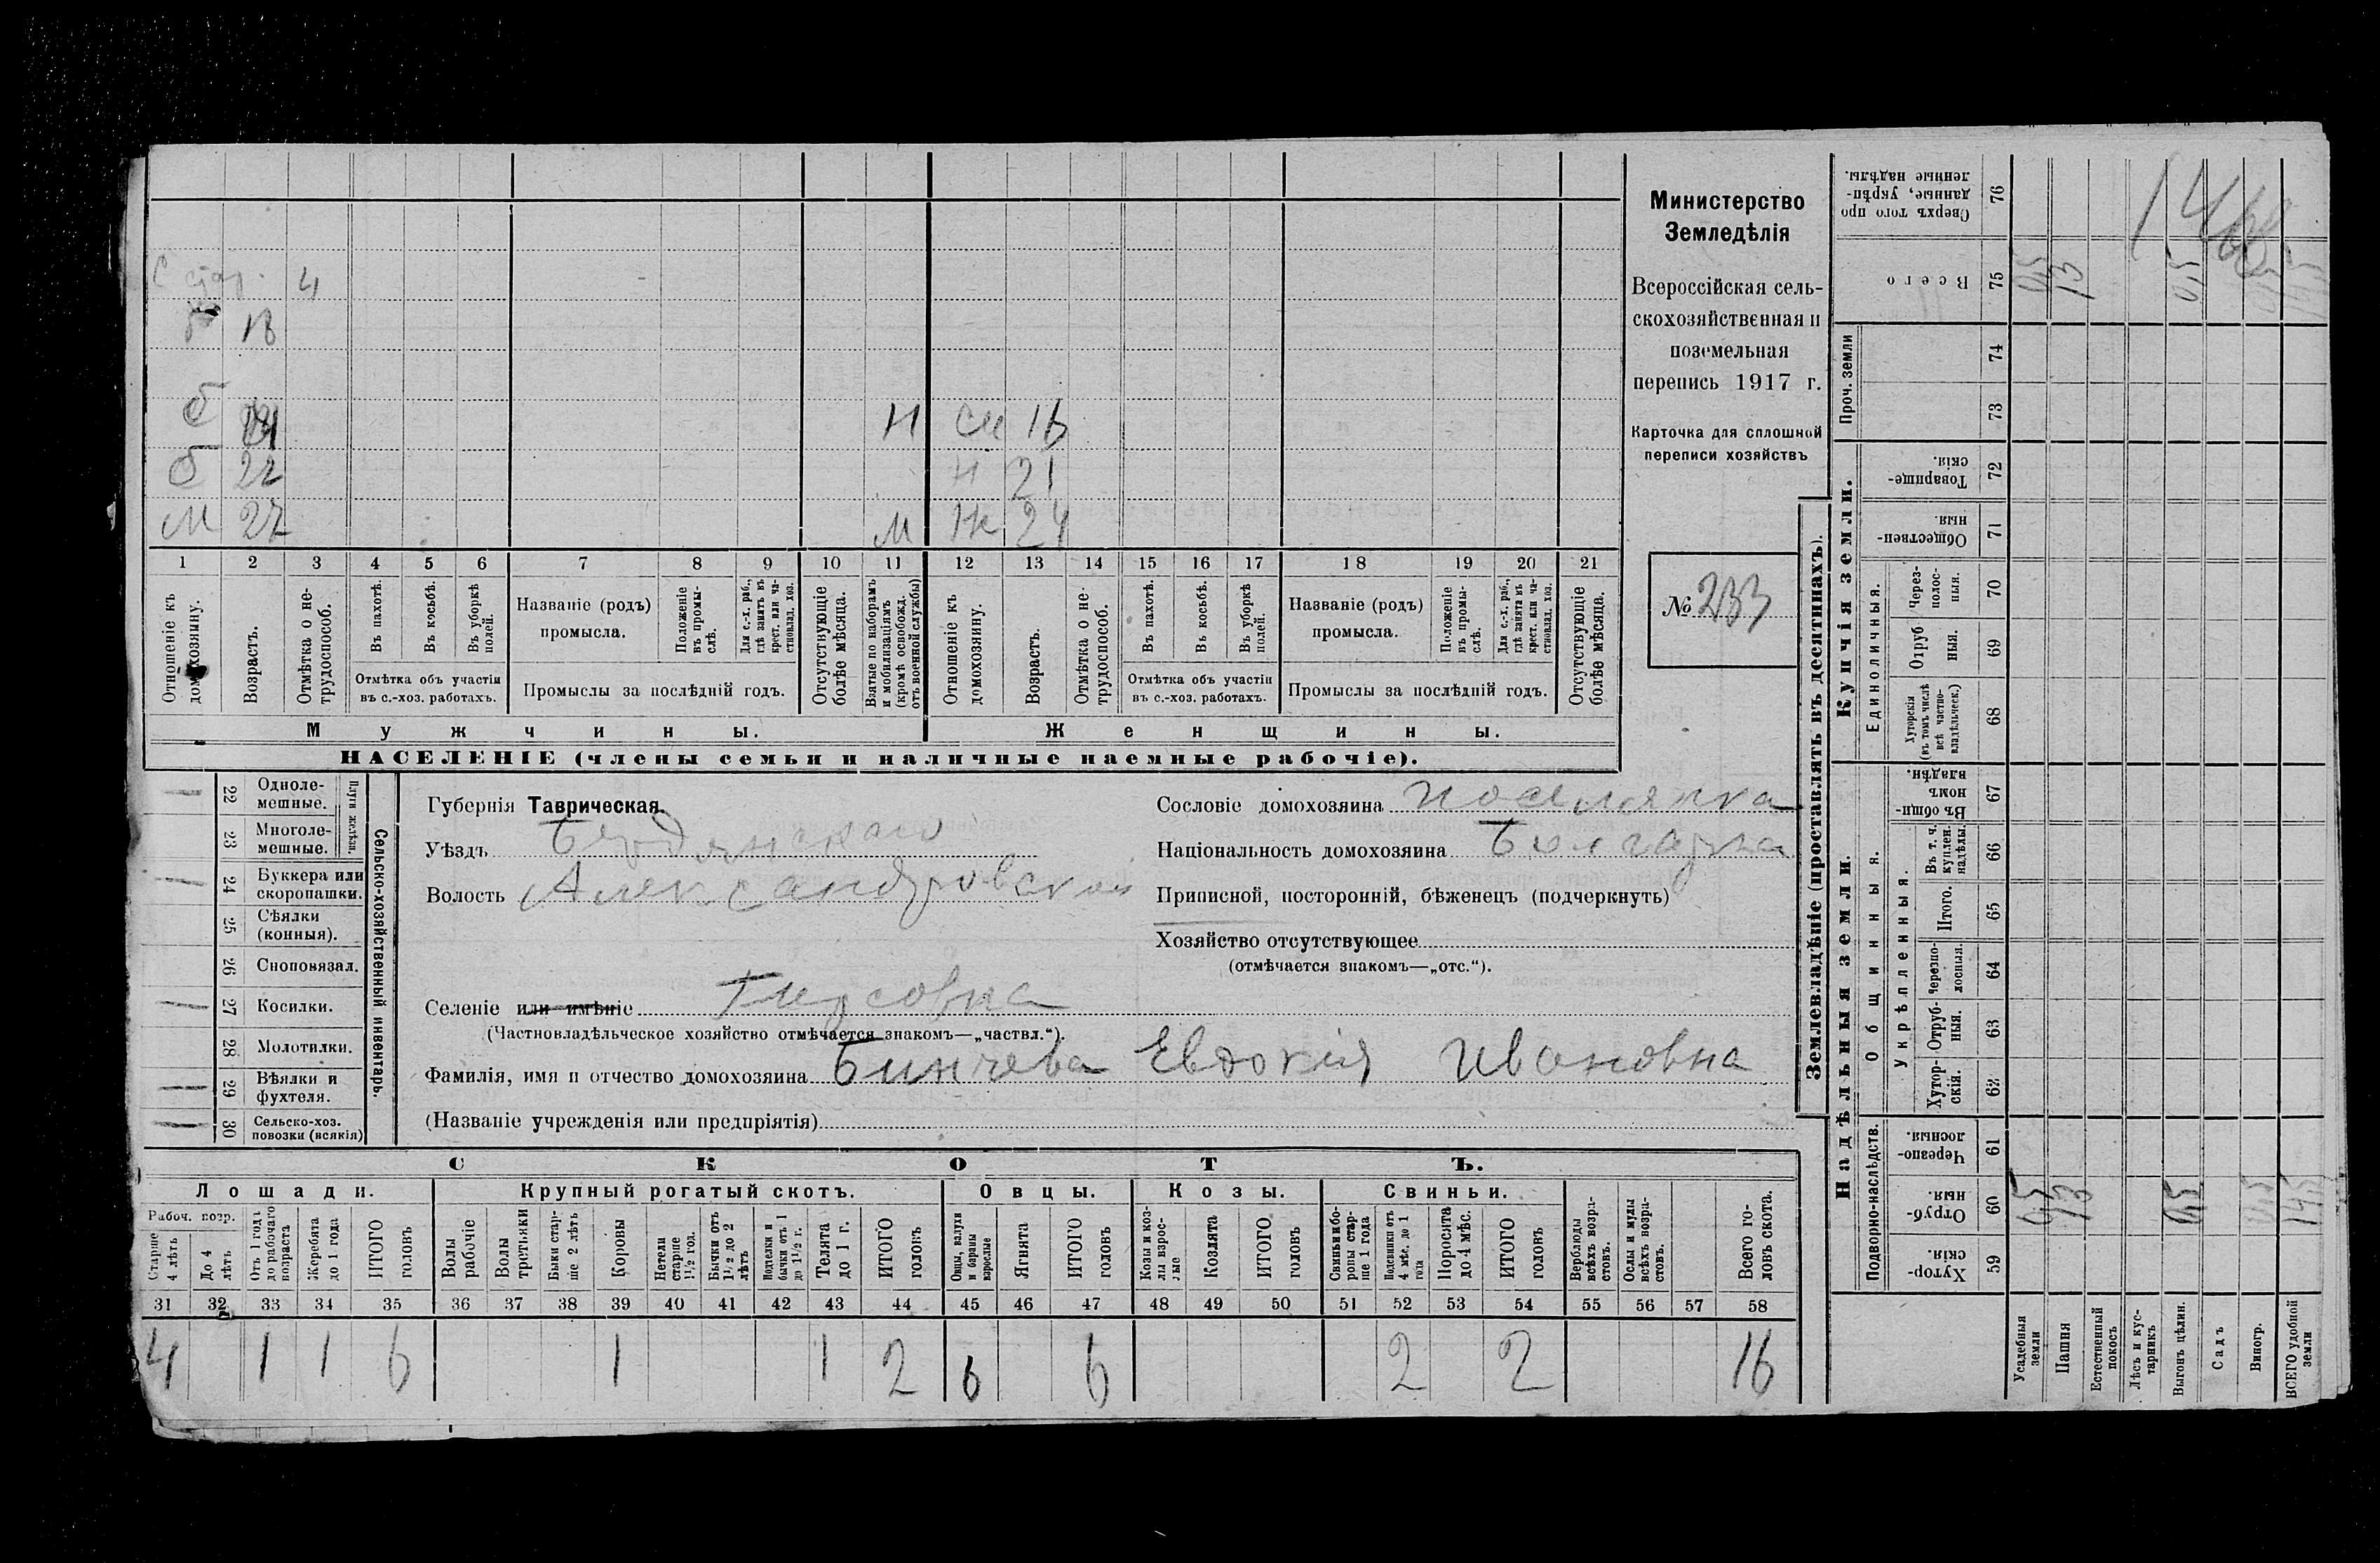 С стар. 4
18
б
Н См 16
б 22 Н 21
М 27 М Ж 24
1 2 3 4 5 6 7 8 9 10 11 12 13 14 15 16 17 18 19 20 21
Отношеніе къ домохозяину.
Возрастъ.
Отмѣтка о не-трудоспособ.
Въ пахотѣ.
Въ косьбѣ.
Въ уборкѣ полей.
Отмѣтка объ участіи въ с.-хоз. работахъ.
Названіе (родъ) промысла.
Положеніе въ промы-слѣ.
Для с.-х. раб., гдѣ занятъ въ крест. или ча-стновлад. хоз.
Промыслы за послѣдній годъ.
Отсутствующіе болѣе мѣсяца.
Взятые по наборамъ и мобилизаціямъ (кромѣ освобожд. отъ военной службы)
Отношеніе къ домохозяину.
Возрастъ.
Отмѣтка о не-трудоспособ.
Въ пахотѣ.
Въ косьбѣ.
Въ уборкѣ полей.
Отмѣтка объ участіи въ с.-хоз. работахъ.
Названіе (родъ) промысла.
Положеніе въ промы-слѣ.
Для с.-х. раб., гдѣ занята въ крест. или ча-стновлад. хоз.
Промыслы за послѣдній годъ.
Отсутствующіе болѣе мѣсяца.
Мужчины. Женщины.
НАСЕЛЕНІЕ (члены семьи и наличные наемные рабочіе).
Министерство
Земледѣлія
Всероссійская сель-
скохозяйственная и
поземельная
перепись 1917 г.
Карточка для сплошной
переписи хозяйствъ
№ 233
22 Одноле-мешные.
23 Многоле-мешные.
Плуги желѣзн.
24 Буккера или скоропашки.
25 Сѣялки (конныя).
26 Сноповязал.
27 Косилки.
28 Молотилки.
29 Вѣялки и фухтеля.
30 Сельско-хоз. повозки (всякія)
Сельско-хозяйственный инвентарь.
Губернія Таврическая.
Уѣздъ Бердянскаго
Волость Александровской
Сословіе домохозяина поселянка
Національность домохозяина Болгарка
Приписной, посторонній, бѣженецъ (подчеркнуть)
Хозяйство отсутствующее
(отмѣчается знакомъ—„отс.“).
Селеніе или имѣніе Гирсовка
(Частновладѣльческое хозяйство отмѣчается знакомъ—„частвл.“).
Фамилія, имя и отчество домохозяина Бинчева Евдокія Ивановна
(Названіе учрежденія или предпріятія)
СКОТЪ.
Лошади. Крупный рогатый скотъ. Овцы. Козы. Свиньи.
Рабоч. возр.
Старше 4 лѣтъ
До 4 лѣтъ
Отъ 1 года до рабочаго возраста
Жеребята до 1 года
ИТОГО головъ
Волы рабочіе
Волы третьяки
Быки стар-ше 2 лѣтъ
Коровы
Нетели старше 1 1/2 год.
Бычки отъ 1 1/2 до 2 лѣтъ
Подтелки и бычки отъ 1 до 1 1/2 г.
Телята до 1 г.
ИТОГО головъ
Овцы, валухи и бараны взрослые
Ягнята
ИТОГО головъ
Козы и коз-лы взрос-лые
Козлята
ИТОГО головъ
Свиньи и бо-ровы стар-ше 1 года
Подсвинки отъ 4 мѣс. до 1 года
Поросята до 4 мѣс.
ИТОГО головъ
Верблюды всѣхъ возра-стовъ.
Ослы и мулы всѣхъ возра-стовъ.
Всего го-ловъ скота.
31 32 33 34 35 36 37 38 39 40 41 42 43 44 45 46 47 48 49 50 51 52 53 54 55 56 57 58
4 1 1 6 1 1 2 6 6 2 2 16
Землевладѣніе (проставлять въ десятинахъ).
Сверхъ того про данные, укрѣп-ленные надѣлы. 76
Всего 75 0,5 13 0,5
Проч. земли 74 73
Купчія земли.
Товарище-скія. 72
Обществен-ныя. 71
Единоличныя.
Через-полос-ныя. 70
Отруб ныя. 69
Хуторскія (въ томъ числѣ всѣ частно-владѣльческ.) 68
Надѣльныя земли.
Общинныя.
Въ общи-номъ владѣн. 67
Укрѣпленныя.
Въ т. ч. куплен. надѣлы. 66
Итого. 65
Черезпо-лосныя. 64
Отруб-ныя. 63
Хутор-скія. 62
Подворно-наслѣдств.
Черезпо-лосныя. 61
Отруб-ныя. 60 0,5 13 0,5 14,5
Хутор-скія. 59
Усадебныя земли
Пашня
Естественный покосъ
Лѣсъ и кус-тарникъ
Выгонъ цѣлин.
Садъ
Виногр.
ВСЕГО удобной земли